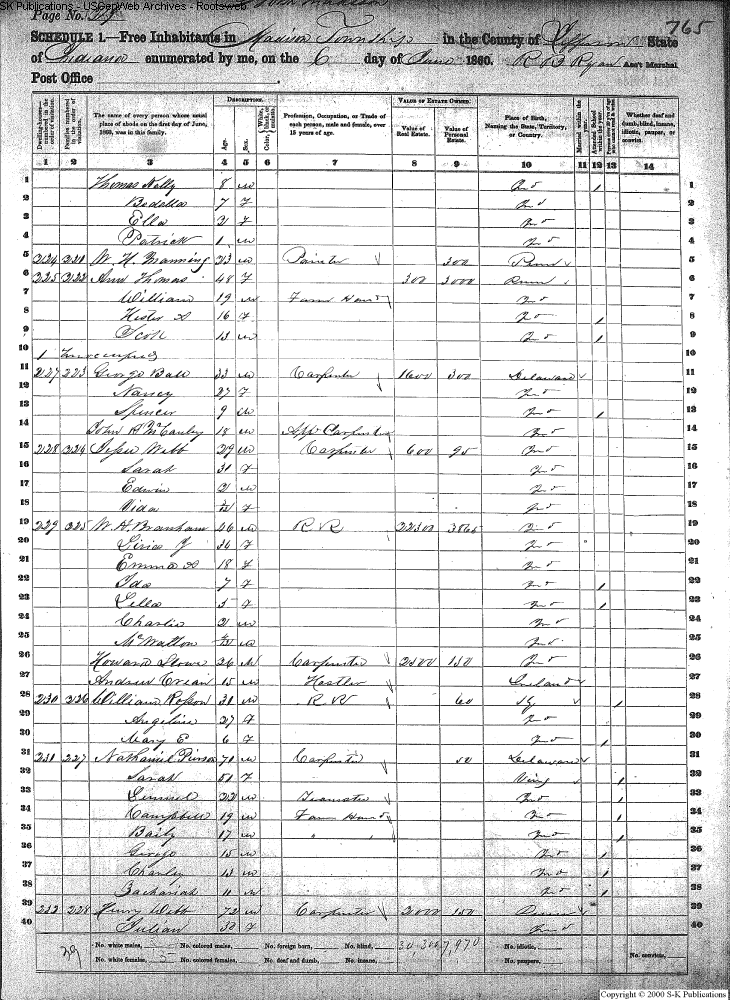 SK Publications - USGenWeb Archives - Rootsweb
Page No.
765
SCHEDULE 1.—Free Inhabitants in Madison Township in the County of Jefferson State
of Indiana enumerated by me, on the 6 day of June 1860. R B Ryan Ass't Marshal
Post Office
Dwelling-houses—numbered in the order of visitation.
Families numbered in the order of visitation.
The name of every person whose usual place of abode on the first day of June, 1860, was in this family.
DESCRIPTION.
Age.
Sex.
Color, White, black, or mulatto.
Profession, Occupation, or Trade of each person, male and female, over 15 years of age.
VALUE OF ESTATE OWNED.
Value of Real Estate.
Value of Personal Estate.
Place of Birth, Naming the State, Territory, or Country.
Married within the year.
Attended School within the year.
Whether deaf and dumb, blind, insane, idiotic, pauper, or convict.
1 2 3 4 5 6 7 8 9 10 11 12 13 14
1 Thomas 8 m Ind / 1
2 7 F Ind 2
3 Ella 2 F Ind 3
4 Patrick 1 m Ind 4
5 224 221 W. H. Manning 23 m Painter 300 Penn 5
6 225 222 Ann Thomas 48 F 300 3000 6
7 William 19 m Farm Hand Ind 7
8 Hester A 16 F Ind / 8
9 Scott 13 m Ind / 9
10 1 Unoccupied 10
11 227 223 George Ball 33 m Carpenter 1600 300 Delaware 11
12 Nancy 27 F Ind 12
13 Spencer 9 m Ind / 13
14 John 18 m App Carpenter Ind 14
15 228 224 Webb 29 m Carpenter 600 95 Ind 15
16 Sarah 31 F Ind 16
17 Edwin 2 m Ind 17
18 Vida F Ind 18
19 229 225 W. H. Branham 46 m R R 22300 3865 Ind 19
20 36 F Ind 20
21 Emma A 18 F Ind 21
22 Ida 7 F Ind / 22
23 Lella 5 F Ind / 23
24 Charlie 2 m Ind 24
25 McWalton m Ind 25
26 Howard Stowe 26 M Carpenter 2500 150 Ind 26
27 Andrew 15 m Hostler Ireland 27
28 230 226 William 31 m R R 60 Ky / 28
29 Angeline 27 F Ind 29
30 Mary E 6 F Ind / 30
31 231 227 Nathaniel Pierson 70 m Carpenter 50 Delaware 31
32 Sarah 51 F Virg / 32
33 22 m Teamster Ind / 33
34 Campbell 19 m Farm Hand Ind / 34
35 Baily 17 m " " Ind / 35
36 15 m Ind / 36
37 Charley 13 m Ind / 37
38 Zachariah 11 m Ind / 38
39 232 228 Henry Webb 72 m Carpenter 2000 150 39
40 Julian 30 F Ind 40
29
No. white males,
No. colored males,
No. foreign born,
No. blind,
30,300 7,970
No. idiotic,
No. white females,
No. colored females,
No. deaf and dumb,
No. insane,
No. paupers,
No. convicts,
Copyright © 2000 S-K Publications